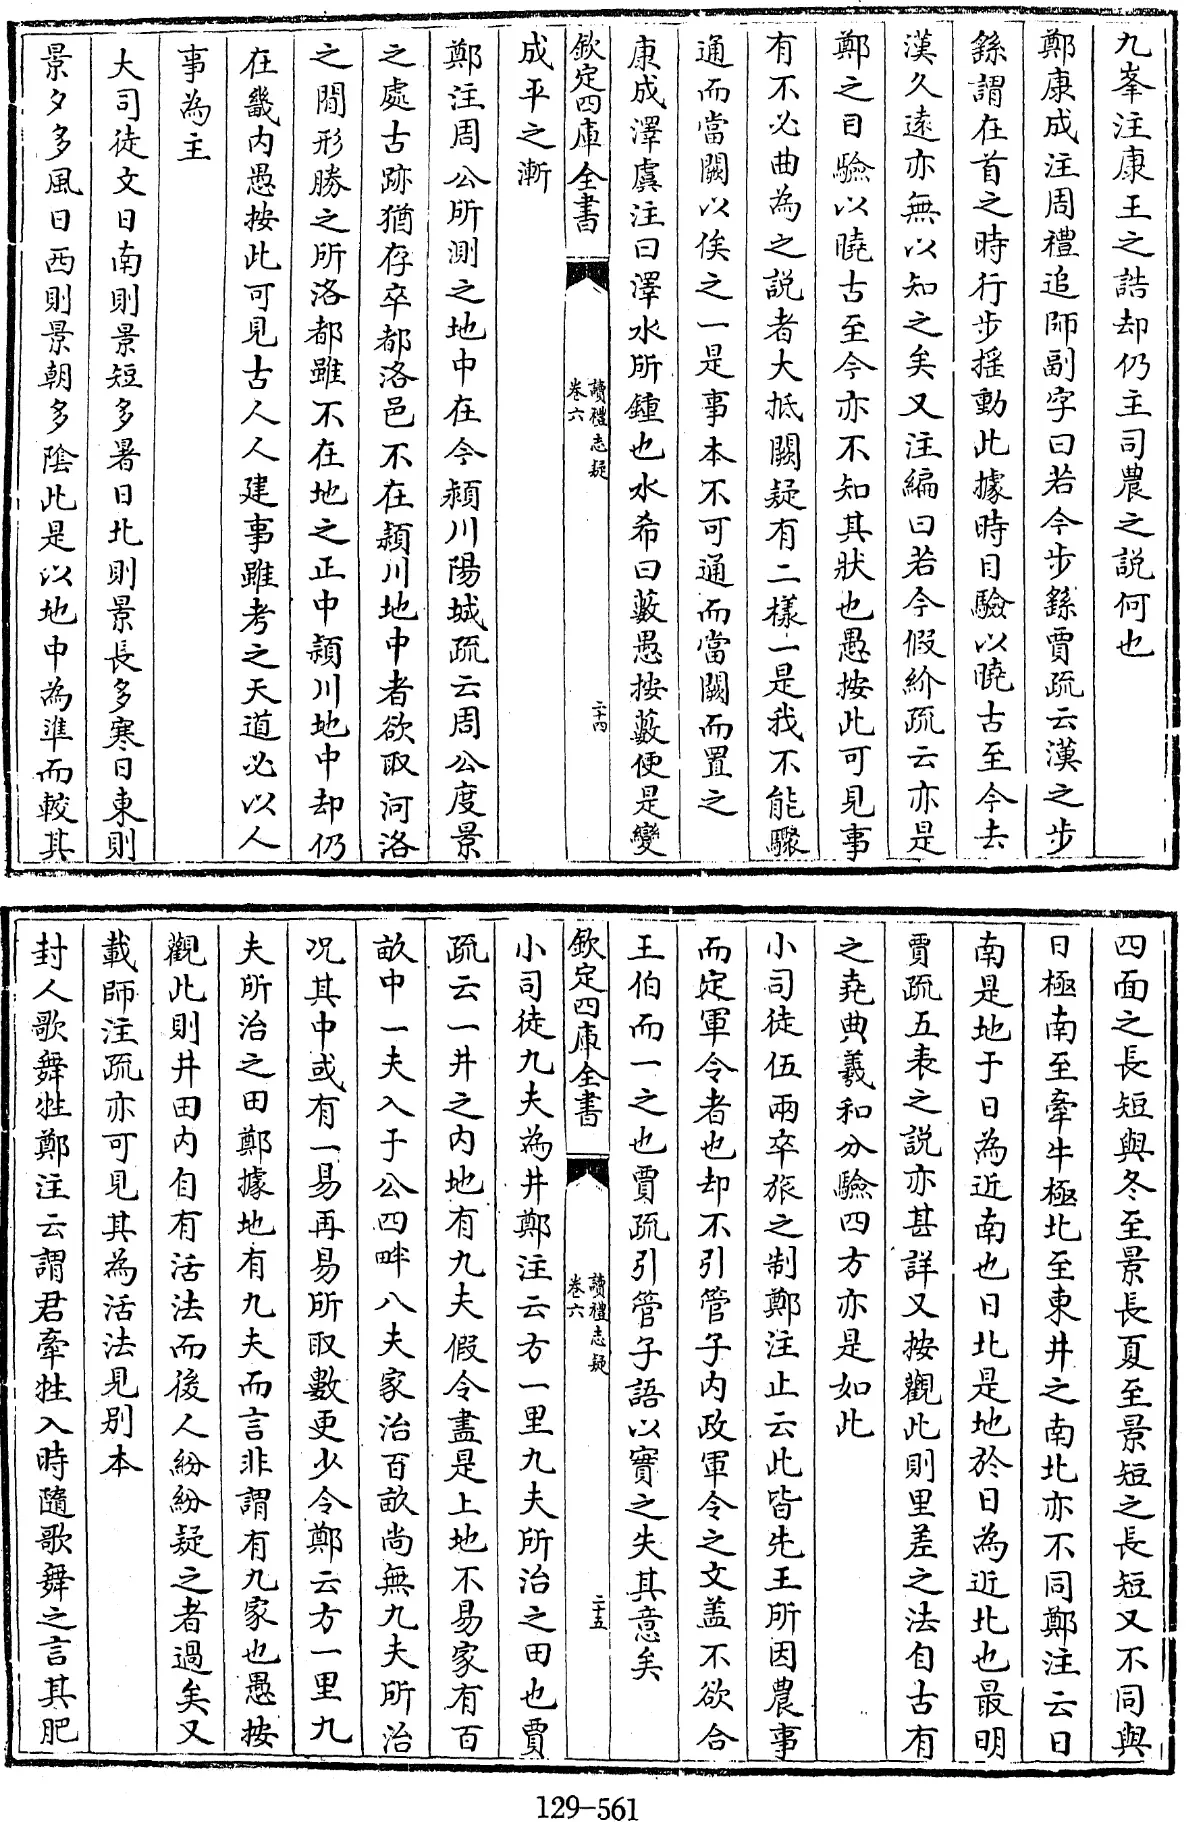 九峯注康王之誥却仍主司農之說何也
鄭康成注周禮追師副字曰若今步繇賈疏云漢之步
繇謂在首之時行步揺動此據時目驗以曉古至今去
漢久遠亦無以知之矣又注編曰若今假紒疏云亦是
鄭之目驗以曉古至今亦不知其狀也愚按此可見事
有不必曲為之說者大抵闕疑有二樣一是我不能驟
通而當闕以俟之一是事本不可通而當闕而置之
康成澤虞注曰澤水所鍾也水希曰藪愚按藪便是變
欽定四庫全書
讀禮志疑
卷六
二十四
成平之漸
鄭注周公所測之地中在今潁川陽城疏云周公度景
之處古跡猶存卒都洛邑不在潁川地中者欲取河洛
之間形勝之所洛都雖不在地之正中潁川地中却仍
在畿内愚按此可見古人人建事雖考之天道必以人
事為主
大司徒文日南則景短多暑日北則景長多寒日東則
景夕多風日西則景朝多陰此是以地中為準而較其
四面之長短與冬至景長夏至景短之長短又不同與
日極南至牽牛極北至東井之南北亦不同鄭注云日
南是地于日為近南也日北是地於日為近北也最明
賈疏五表之說亦甚詳又按觀此則里差之法自古有
之堯典羲和分驗四方亦是如此
小司徒伍兩卒旅之制鄭注止云此皆先王所因農事
而定軍令者也却不引管子内政軍令之文盖不欲合
王伯而一之也賈疏引管子語以實之失其意矣
欽定四庫全書
讀禮志疑
卷六
二十五
小司徒九夫為井鄭注云方一里九夫所治之田也賈
疏云一井之内地有九夫假令盡是上地不易家有百
畝中一夫入于公四畔八夫家治百畝尚無九夫所治
况其中或有一易再易所取數更少今鄭云方一里九
夫所治之田鄭據地有九夫而言非謂有九家也愚按
觀此則井田内自有活法而後人紛紛疑之者過矣又
載師注疏亦可見其為活法見别本
封人歌舞牲鄭注云謂君牽牲入時隨歌舞之言其肥
129-561